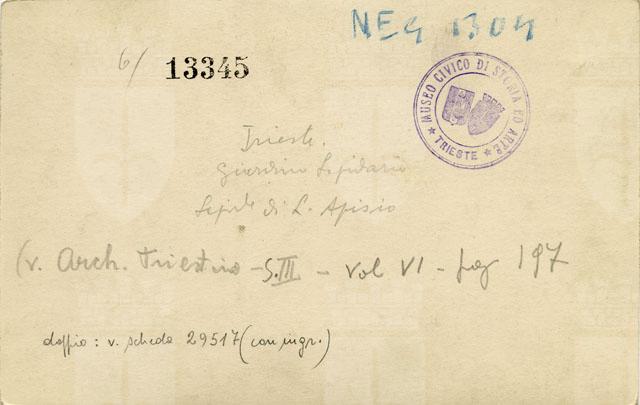 NEG 1304
6/ 13345
MUSEO CIVICO DI STORIA ED ARTE
★ TRIESTE ★
Trieste.
Giardino Lapidario
di L. Apisio
(v. Arch. Triestino - S. III - Vol VI - pag 197
doppio : v. scheda 29517 (con ingr.)